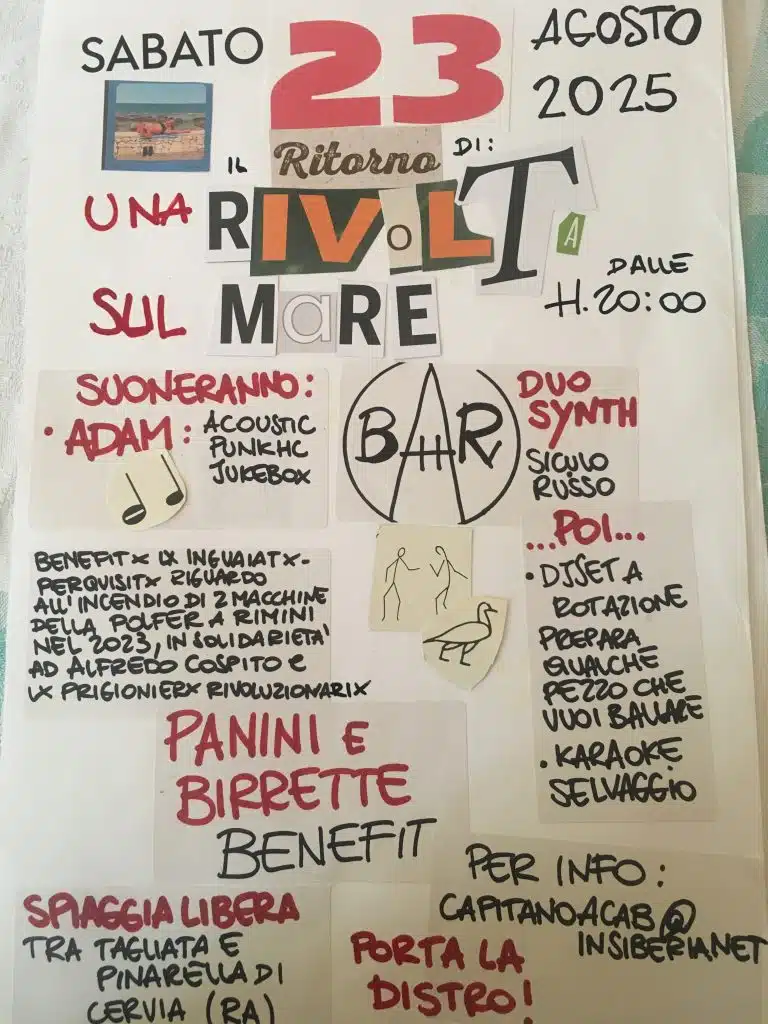 SABATO 23 AGOSTO
2025
IL Ritorno DI:
UNA RIVOLTA
SUL MaRE
DALLE
H.20:00
SUONERANNO:
• ADAM: ACOUSTIC
PUNKHC
JUKEBOX
BAHR
DUO
SYNTH
SICULO
RUSSO
...POI...
• DJSET A
ROTAZIONE
PREPARA
QUALCHE
PEZZO CHE
VUOI BALLARE
• KARAOKE
SELVAGGIO
BENEFIT x LX INGUAIATX-
PERQUISITX RIGUARDO
ALL'INCENDIO DI 2 MACCHINE
DELLA POLFER A RIMINI
NEL 2023, IN SOLIDARIETA'
AD ALFREDO COSPITO E
LX PRIGIONIERX RIVOLUZIONARIX
PANINI E
BIRRETTE
BENEFIT
PER INFO:
CAPITANOACAB@
INSIBERIA.NET
SPIAGGIA LIBERA
TRA TAGLIATA E
PINARELLA DI
CERVIA (RA)
PORTA LA
DISTRO!